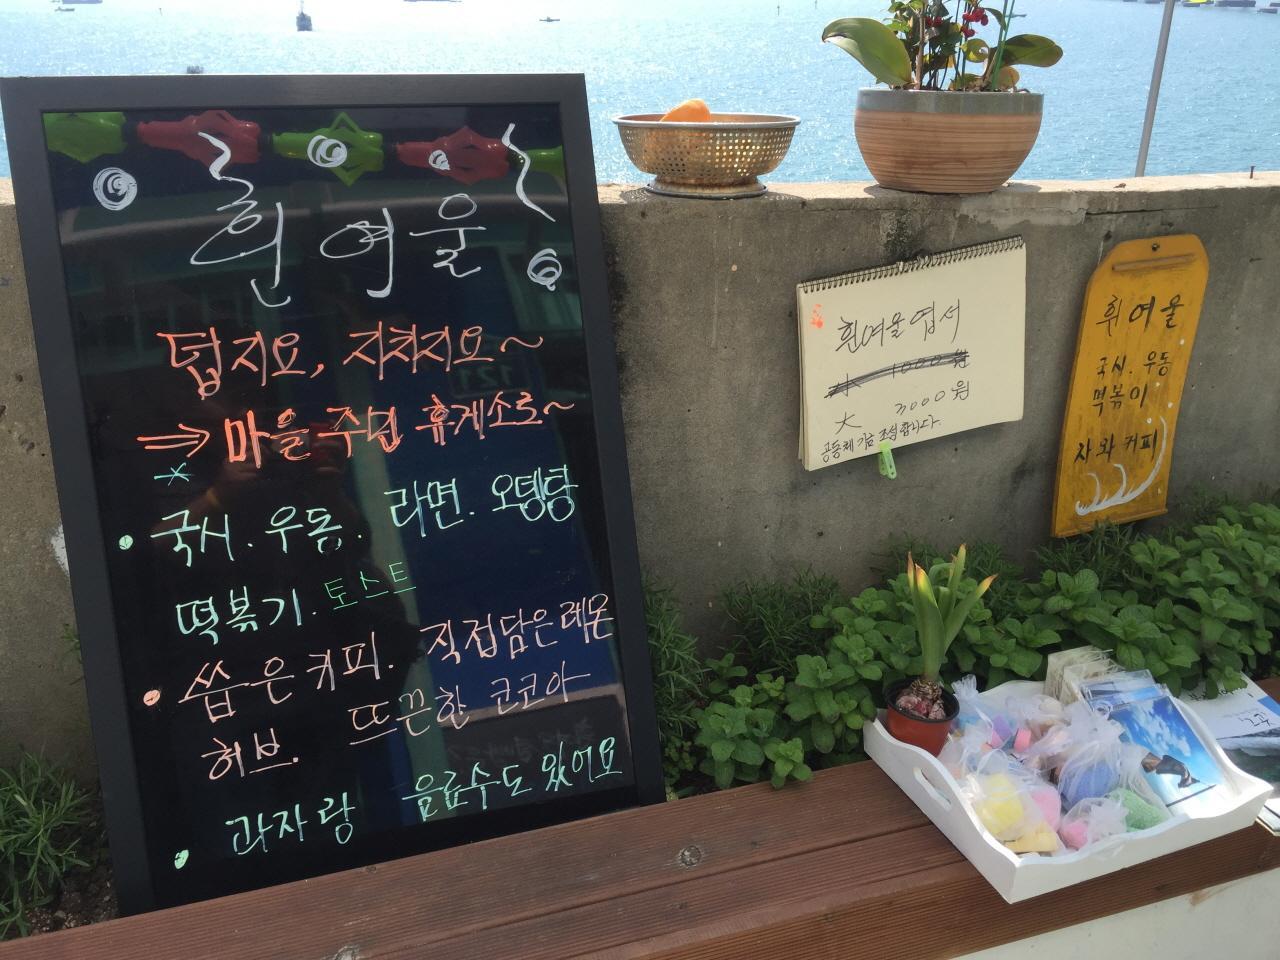 흰여울
덥지요, 지치지요~
⇒ 마을 주민 휴게소로~
*
• 국시. 우동. 라면. 오뎅탕
떡볶기. 토스트
• 씁은 커피. 직접담은 레몬
허브. 뜨끈한 코코아
• 과자랑 음료수도 있어요
흰여울엽서
小 1000원
大 3000원
공동체 기금 조성합니다.
흰여울
국시. 우동
떡볶이
차와 커피